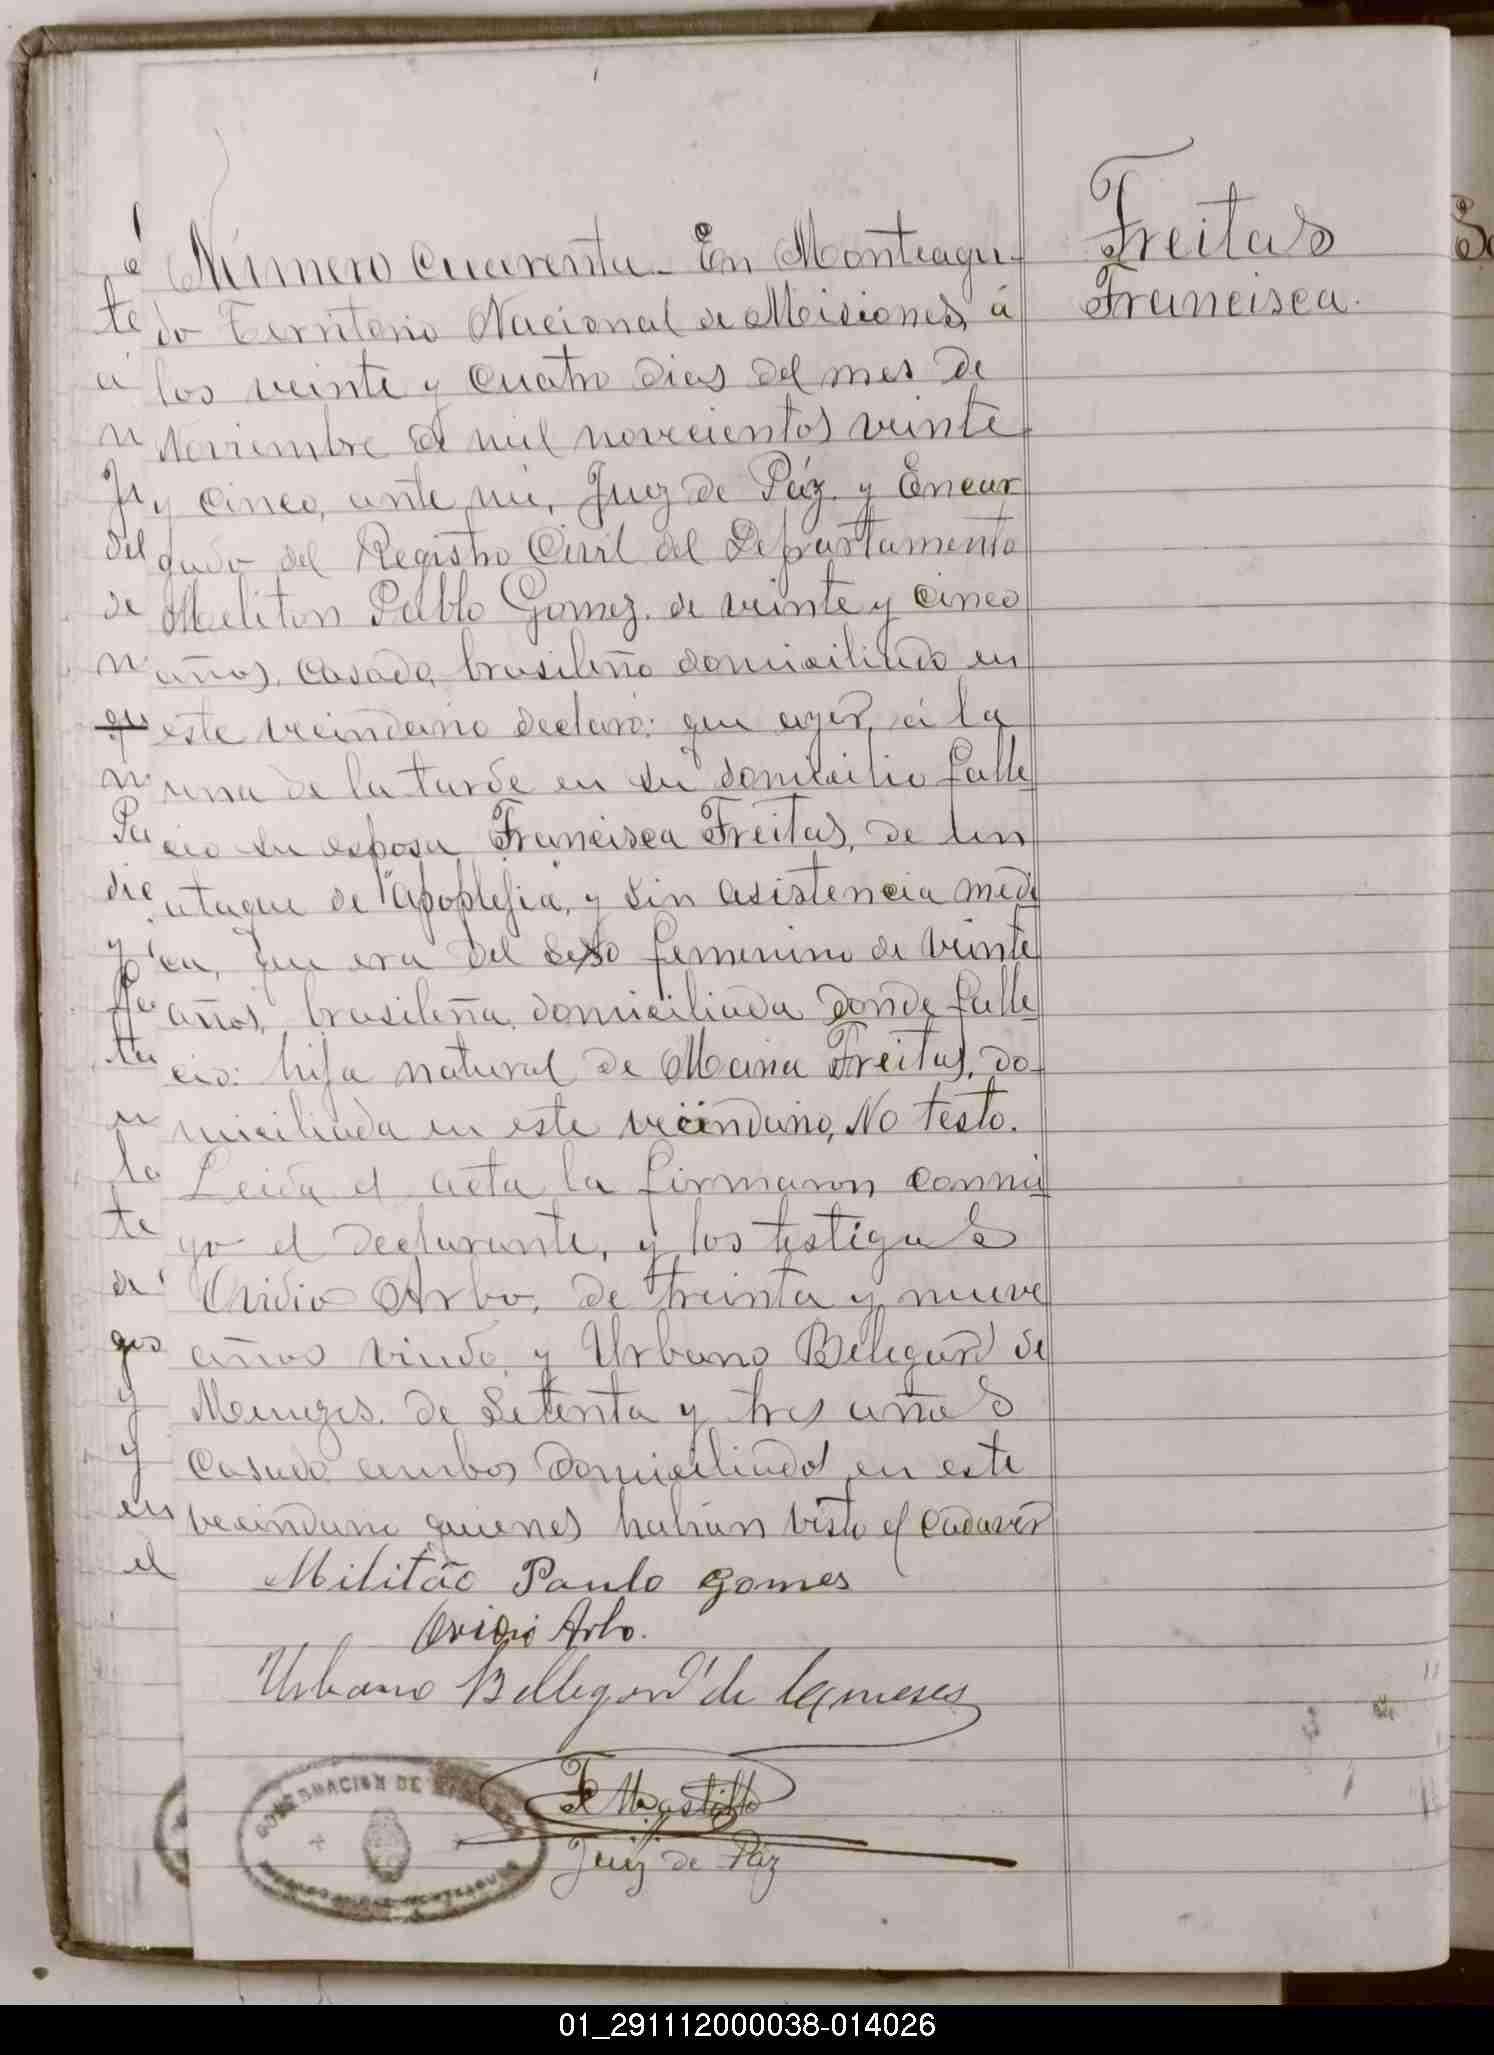 Freitas
Francisca.
Número cuarenta. En Monteagu-
do Territorio Nacional de Misiones, á
los veinte y cuatro dias del mes de
Noviembre de mil novecientos veinte
y cinco, ante mi, Juez de Páz. y Encar
gado del Registro Civil del Departamento
Meliton Pablo Gomez. de veinte y cinco
años, casado, brasileño domiciliado en
este vecindario declaró: que ayer, á la
una de la tarde en su domicilio falle
cio su esposa Francisca Freitas, de un
ataque de apoplejia, y sin asistencia medi
ca, que era del sexo femenino de veinte
años, brasileña, domiciliada donde falle
cio: hija natural de Maria Freitas, do-
miciliada en este vecindario, No testo.
Leida el acta la firmaron conmi
go el declarante, y los testigos
Ovidio Arbo, de treinta y nueve
años viudo y Urbano Belegard de
de setenta y tres años
casado ambos domiciliados en este
vecindario quienes habian visto el cadaver
Militão Paulo Gomes
Ovidio Arbo.
Urbano Bellegard de
Juez de Paz
GOBERNACION DE
01_291112000038-014026